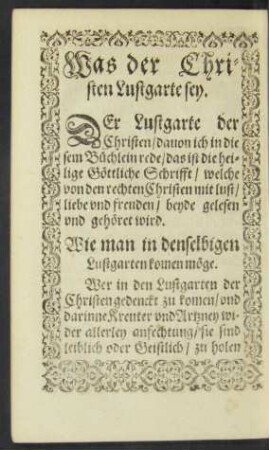 Was der Chri-
sten Lustgarte sey.
DEr Lustgarte der
Christen/dauon ich in die
sem Büchlein rede/das ist die hei-
lige Göttliche Schrifft/ welche
von den rechten Christen mit lust/
liebe vnd freuden/ beyde gelesen
vnd gehöret wird.
Wie man in denselbigen
Lustgarten komen möge.
Wer in den Lustgarten der
Christen gedenckt zu komen/vnd
darinne Kreuter vnd Artzney wi-
der allerley anfechtung/sie sind
leiblich oder Geistlich/ zu holen